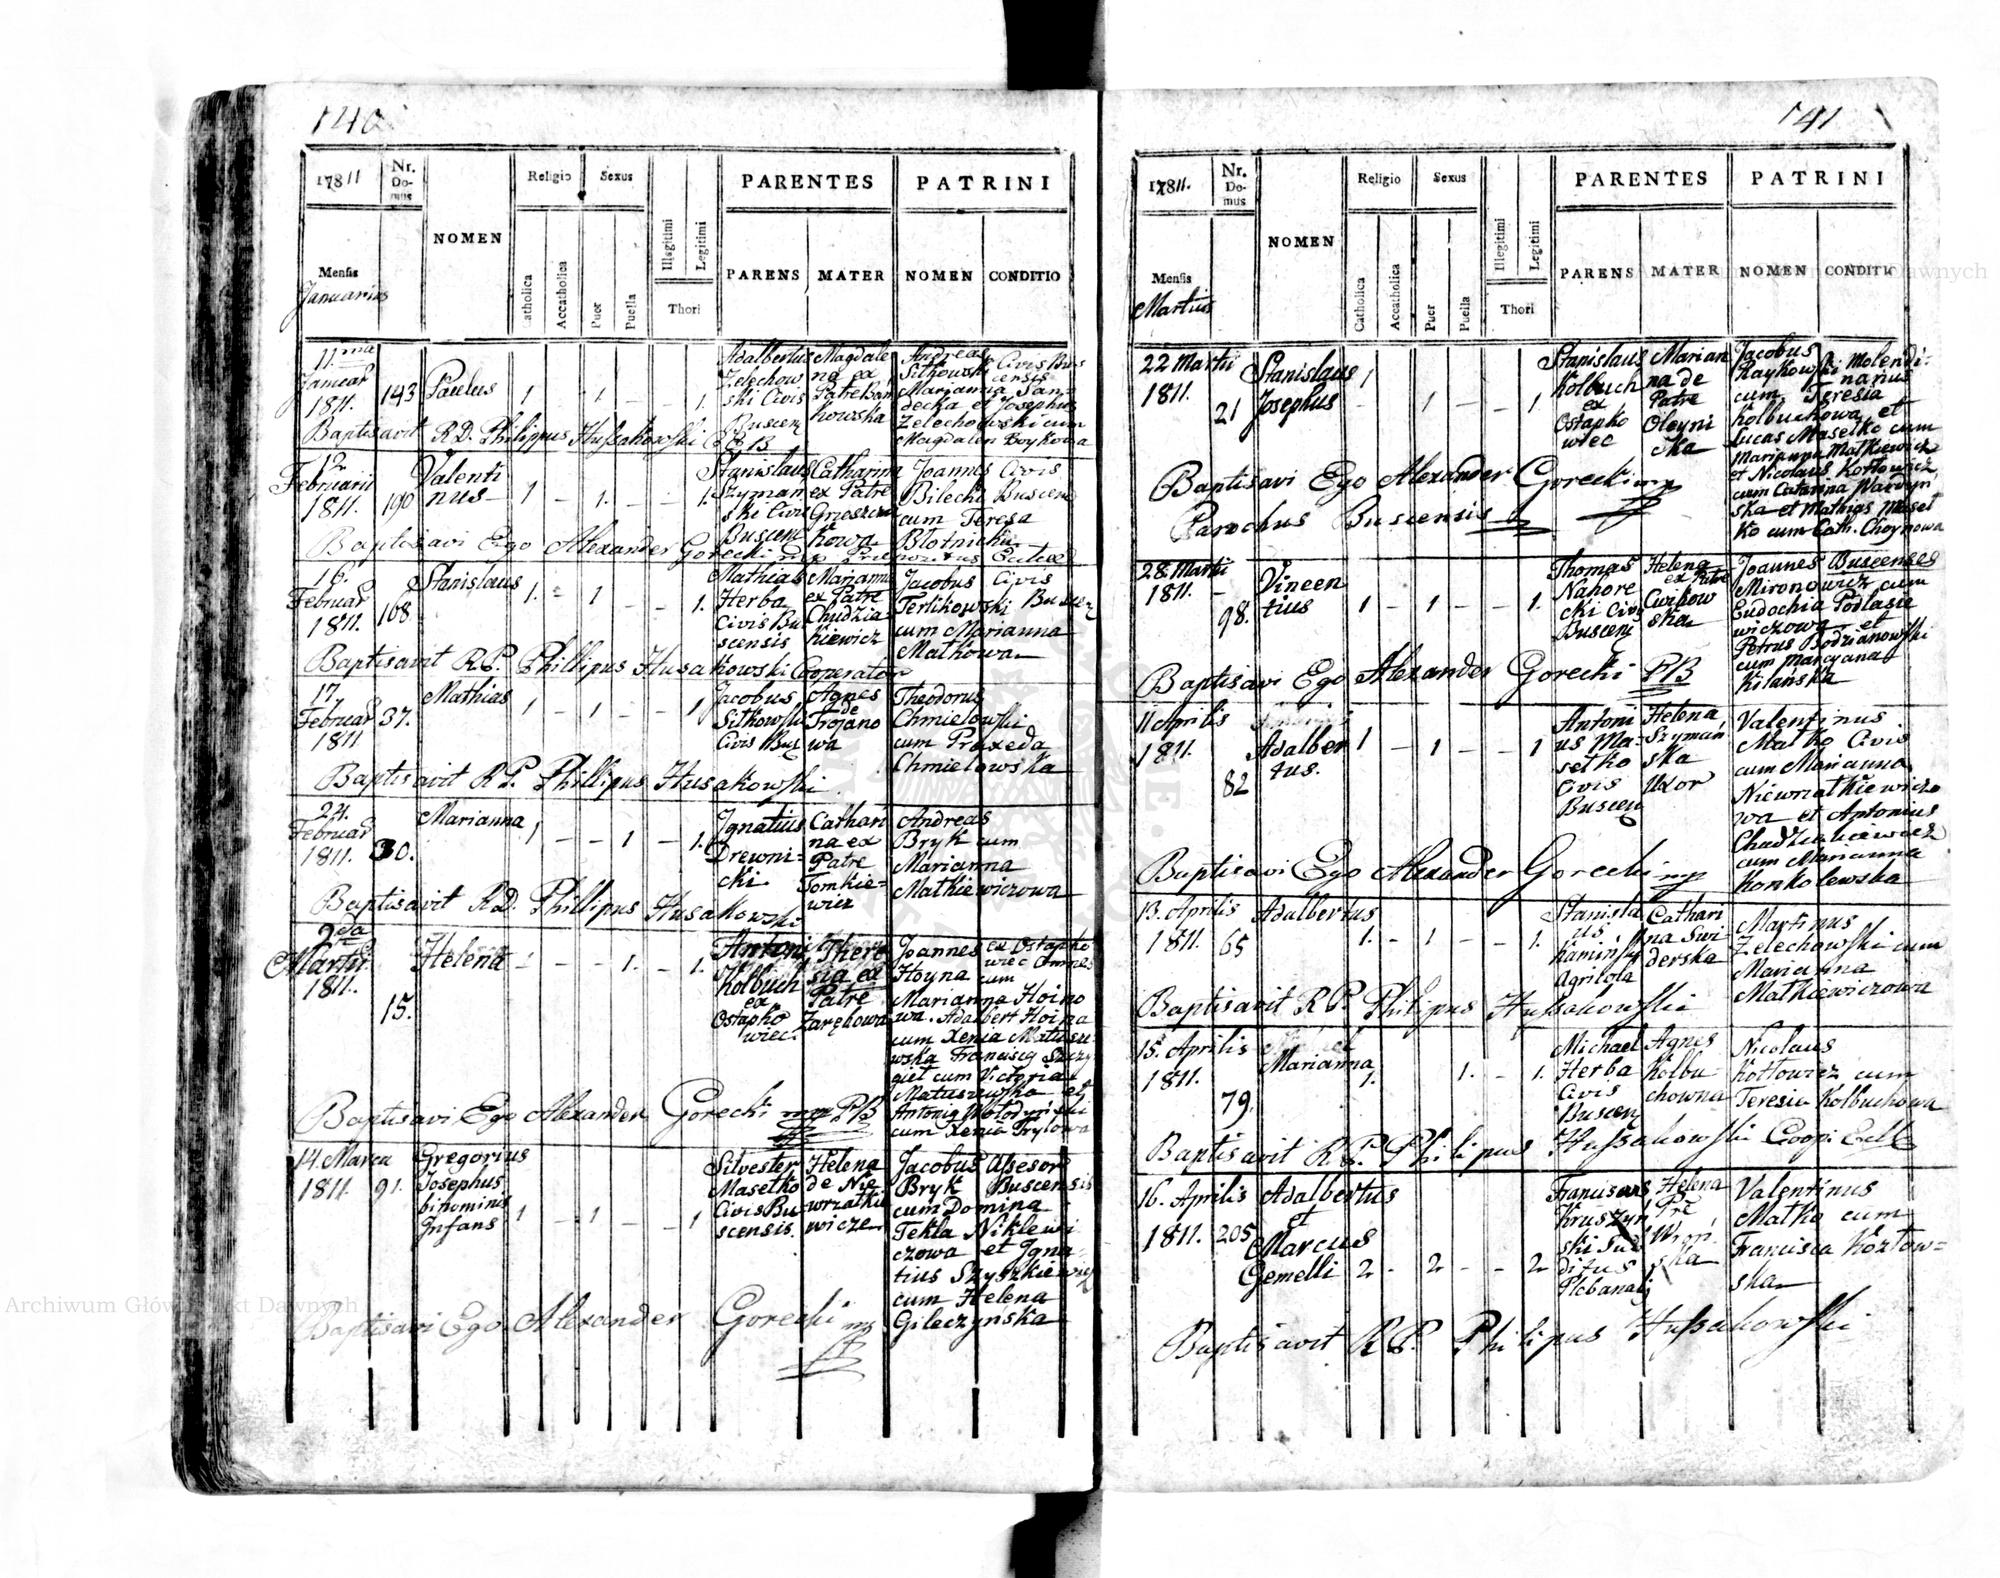 140
17811
Nr. Domus
NOMEN
Religio
Sexus
PARENTES
PATRINI
Mensis
Januarius
Catholica
Accatholica
Puer
Puella
Illegitimi
Legitimi
Thori
PARENS
MATER
NOMEN
CONDITIO
11ma
Januar
1811.
143
Paulus
1
-
1
-
-
1.
Adalbertus
Zelechow
ski Civis
Buscen
Magdale
na ex
Patre Ban
kowska
Andreas
Sitkowski Civis Bus
censis
Marianna San
decka et Josephus
Zelechowski cum
Magdalen Boykowa
Baptisavit RD. Philippus Hussakowski CEB
12
Februarii
1811.
190
Valenti
nus
1
-
1.
-
-
1.
Stanislaus
Szyman
ski Civis
Buscen
Catharina
ex Patre
Grzeszcza
kowa
Joannes Civis
Bilecki Buscen
cum Teresa
Blotnicka
Baptisavi Ego Alexander Gorecki
16.
Februar
1811.
168
Stanislaus
1.
-
1
-
-
1.
Mathias
Herba
Civis Bu
scensis
Marianna
ex Patre
Chudzia
kiewicz
Jacobus Civis
Terlikowski Buscen
cum Marianna
Matkowa
Baptisavit RP. Phillipus Husakowski Cooperator
17
Februar
1811
37.
Mathias
1
-
1
-
-
1
Jacobus
Sitkowski
Civis Bus
Agnes
de
Trojano
wa
Theodorus
Chmielowski
cum Praxeda
Chmielowska
Baptisavit RP. Phillipus Husakowski
24.
Februar
1811.
30.
Marianna
1
-
-
1
-
1.
Ignatius
Drewni=
cki.
Cathari
na ex
Patre
Tomkie=
wicz
Andreas
Bryk cum
Marianna
Mathiewiczowa
Baptisavit RD. Phillipus Husakowski
2da
Martii
1811.
15.
Helena
-
-
-
1.
-
1.
Antoni
Kolbuch
ex
Ostapko
wiec.
There
sia ex
Patre
Zarębowa
Joannes ex Ostapko
wiec omnes
Hoyna cum
Marianna Hoino
wa. Adalbert Hoina
cum Xenia Matusu
wska Francisco Szczy
giel cum Victoria
Matuszewska et
Antonio Wolodynski
cum Xenia Trylowa
Baptisavi Ego Alexander Gorecki mp PB
14. Marca
1811.
91.
Gregorius
Josephus
binominis
Infans
1
-
1
-
-
1
Silvester
Masetko
Civis Bu
scensis.
Helena
de Nie
wrzatki
wicze
Jacobus Assesor
Bryk Buscensis
cum Domina
Tekla Niklewi
czowa et Igna
tius Szyszkiewicz
cum Helena
Gileczyńska
Baptisavi Ego Alexander Gorecki mp
141
17811.
Nr. Domus
NOMEN
Religio
Sexus
PARENTES
PATRINI
Mensis
Martius
Catholica
Accatholica
Puer
Puella
Illegitimi
Legitimi
Thori
PARENS
MATER
NOMEN
CONDITIO
22 Martii
1811.
21
Stanislaus
Josephus
1
-
1
-
-
1.
Stanislaus
Kolbuch
ex
Ostapko
wiec
Marian
na de
Patre
Oleyni
cka
Jacobus
Haykowski Molendi
narius
cum Teresia
Kolbuchowa et
Lucas Masetko cum
Marianna Matkiewicz
et Nicolaus Kotlowicz
cum Catarina Nawryn
ska et Mathias Maset
ko cum Cath. Choynowa
Baptisavi Ego Alexander Gorecki mp
Parochus Buscensis
28 Martii
1811.
98.
Vincen
tius
1
-
1
-
-
1.
Thomas
Nahore
cki Civis
Buscen
Helena
ex Patre
Cwikow
ska
Joannes Buscenses
Mironowicz cum
Eudochia Podlasie
wiczowa et
Petrus Bodzianowski
cum Marcyana
Kilańska
Baptisavi Ego Alexander Gorecki PB
11 Aprilis
1811.
82
Adalber
tus.
1
-
1
-
-
1
Antoni
us Ma-
setko
Civis
Buscen
Helena
Szyman
ska
Uxor
Valentinus
Matko Civis
cum Marianna
Niewrzatkiewiczo
wa et Antonius
Chudziakiewicz
cum Marianna
Konkolewska
Baptisavi Ego Alexander Gorecki mp
13. Aprilis
1811.
65
Adalbertus
1.
-
1
-
-
1.
Stanisla
us
Kaminsky
Agricola
Cathari
na Swi
derska
Martinus
Zelechowski cum
Marianna
Matkiewiczowa
Baptisavit RP. Philipus Hussakowski
15. Aprilis
1811.
79.
Marianna
1.
1.
-
1.
Michael
Herba
Civis
Buscen
Agnes
Kolbu
chowna
Nicolaus
Kotlowicz cum
Teresia Kolbuchowa
Baptisavit R.P. Philipus Hussakowski Coop. Eccl
16. Aprilis
1811.
205
Adalbertus
et
Marcus
Gemelli
2
-
2
-
-
2
Franciscus
Kruszyn
ski Sub
ditus
Plebanalis
Helena
Pre
Wron
ska
Valentinus
Matko cum
Francisca Kozłow=
ska
Baptisavit R.P. Philipus Hussakowski
Archiwum Główne Akt Dawnych